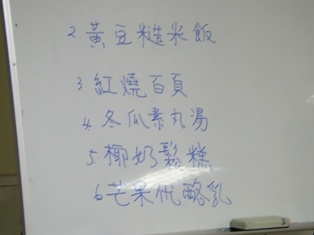 2 黃豆糙米飯
3. 紅燒百頁
4. 冬瓜素丸湯
5. 椰奶鬆糕
6 芒果优酪乳